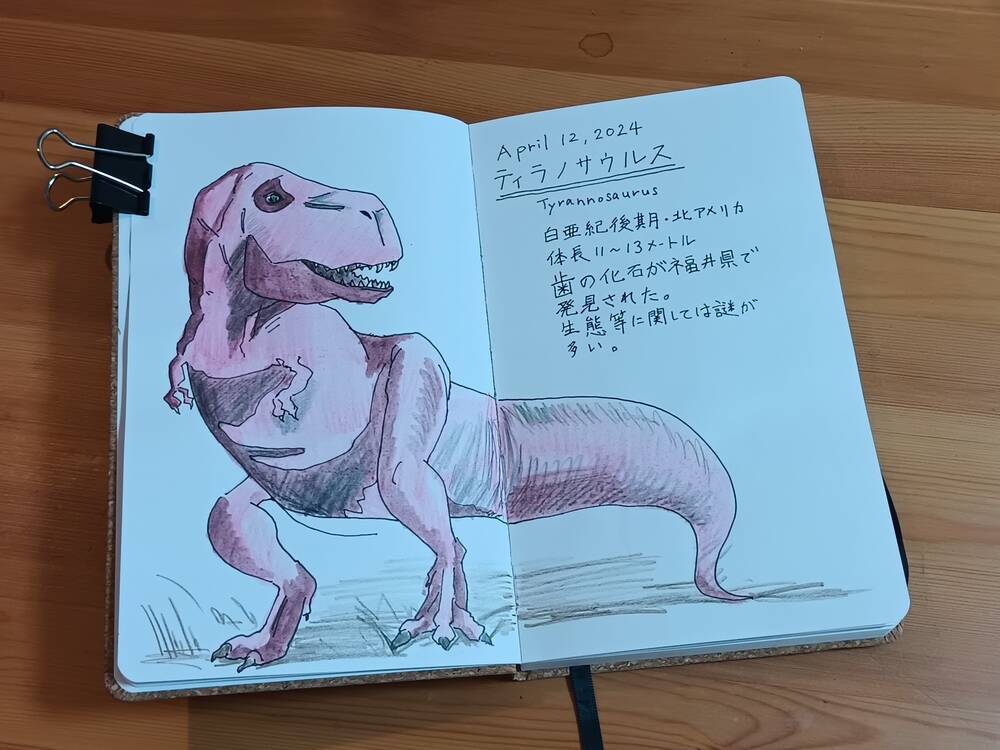 April 12, 2024
ティラノサウルス
Tyrannosaurus
白亜紀後期・北アメリカ
体長11〜13メートル
歯の化石が福井県で
発見された。
生態等に関しては謎が
多い。